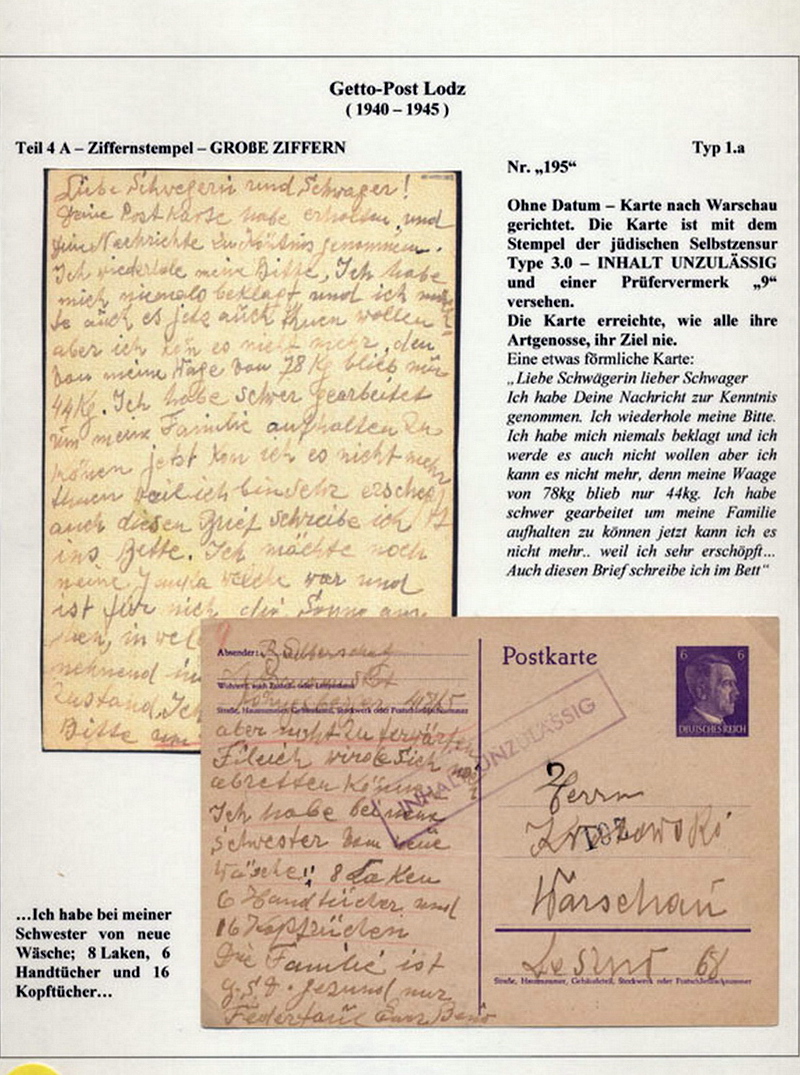 Getto-Post Lodz
( 1940 – 1945 )
Teil 4 A – Ziffernstempel – GROßE ZIFFERN
Typ 1.a
Nr. „195“
Ohne Datum – Karte nach Warschau
gerichtet. Die Karte ist mit dem
Stempel der jüdischen Selbstzensur
Type 3.0 – INHALT UNZULÄSSIG
und einer Prüfervermerk „9“
versehen.
Die Karte erreichte, wie alle ihre
Artgenosse, ihr Ziel nie.
Eine etwas förmliche Karte:
„Liebe Schwägerin lieber Schwager
Ich habe Deine Nachricht zur Kenntnis
genommen. Ich wiederhole meine Bitte.
Ich habe mich niemals beklagt und ich
werde es auch nicht wollen aber ich
kann es nicht mehr, denn meine Waage
von 78kg blieb nur 44kg. Ich habe
schwer gearbeitet um meine Familie
aufhalten zu können jetzt kann ich es
nicht mehr.. weil ich sehr erschöpft...
Auch diesen Brief schreibe ich im Bett“
Liebe Schwegerin und Schwager!
Deine Postkarte habe erhalten und
deine Nachrichte zu Köntnis genommen.
Ich wiederhole meine Bitte, Ich habe
mich niemals beklagt und ich
es jetz auch thuen wollen
aber ich kön es nicht mehr, den
von meine Wage von 78 Kg blieb nur
44 Kg. Ich habe schwer gearbeitet
um meine Familie aufhalten zu
können jetzt kon ich es nicht mehr
thuen weil ich bin sehr
auch diesen Brief schreibe ich
ins Bette. Ich mächte noch
meine welche war und
ist für mich die Sonne
in
nehmend in
Zustand. Ich
Bitte
Absender:
Wohnort, auch Zustell- oder Leitpostamt
Straße, Hausnummer, Gebäudeteil, Stockwerk oder Postschließfachnummer
aber nicht zu
wirde sich
abretten
Ich habe bei meine
Schwester von neue
Wäsche: 8 Laken
6 Handtücher und
16 Kopftücher
Die Familie ist
g.s.d. gesund nur
Postkarte
6 6
DEUTSCHES REICH
INHALT UNZULÄSSIG
Herrn
Warschau
Leszno 68
Straße, Hausnummer, Gebäudeteil, Stockwerk oder Postschließfachnummer
...Ich habe bei meiner
Schwester von neue
Wäsche; 8 Laken, 6
Handtücher und 16
Kopftücher...